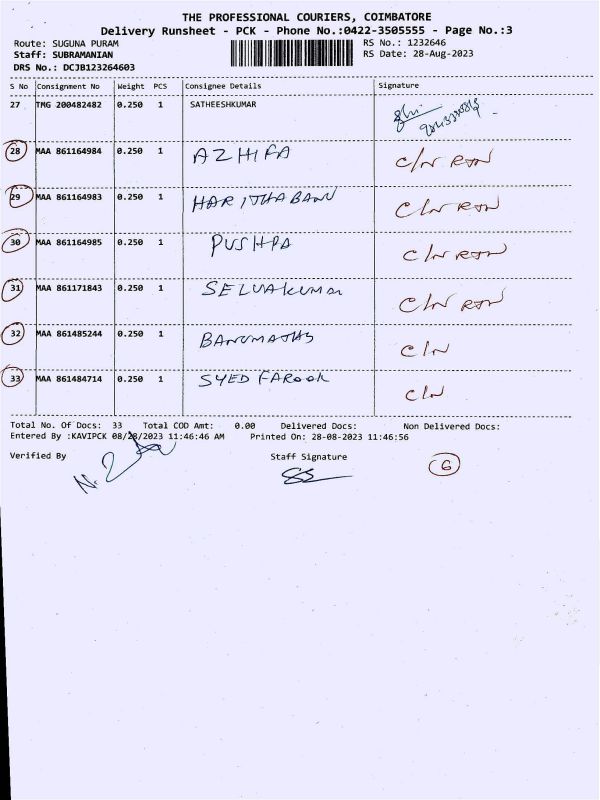 THE PROFESSIONAL COURIERS, COIMBATORE
Delivery Runsheet - PCK - Phone No.:0422-3505555 - Page No.:3
Route: SUGUNA PURAM RS No.: 1232646
Staff: SUBRAMANIAN RS Date: 28-Aug-2023
DRS No.: DCJB123264603
S No Consignment No Weight PCS Consignee Details Signature
27 TMG 200482482 0.250 1 SATHEESHKUMAR
28 MAA 861164984 0.250 1 AZHIFA C/N RTN
29 MAA 861164983 0.250 1 HARITHA BANU C/N RTN
30 MAA 861164985 0.250 1 PUSHPA C/N RTN
31 MAA 861171843 0.250 1 SELVAKUMAR C/N RTN
32 MAA 861485244 0.250 1 BANUMATHY C/N
33 MAA 861484714 0.250 1 SYED FAROOK C/N
Total No. Of Docs: 33 Total COD Amt: 0.00 Delivered Docs: Non Delivered Docs:
Entered By :KAVIPCK 08/28/2023 11:46:46 AM Printed On: 28-08-2023 11:46:56
Verified By Staff Signature 6